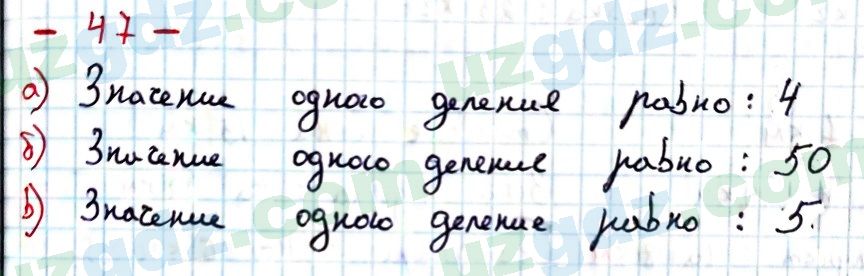 - 47 -
а) Значение одного деления равно: 4
б) Значение одного деление равно: 50
в) Значение одного деление равно: 5.